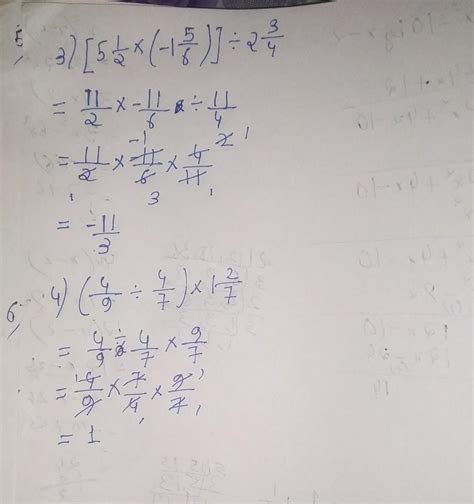 5, 3) [5 1/2 × (-1 5/6)] ÷ 2 3/4
= 11/2 × -11/6 ÷ 11/4
= 11/2 × -11/6 × 4/11
= -11/3
6, 4) (4/9 ÷ 4/7) × 1 2/7
= 4/9 ÷ 4/7 × 9/7
= 4/9 × 7/4 × 9/7
= 1